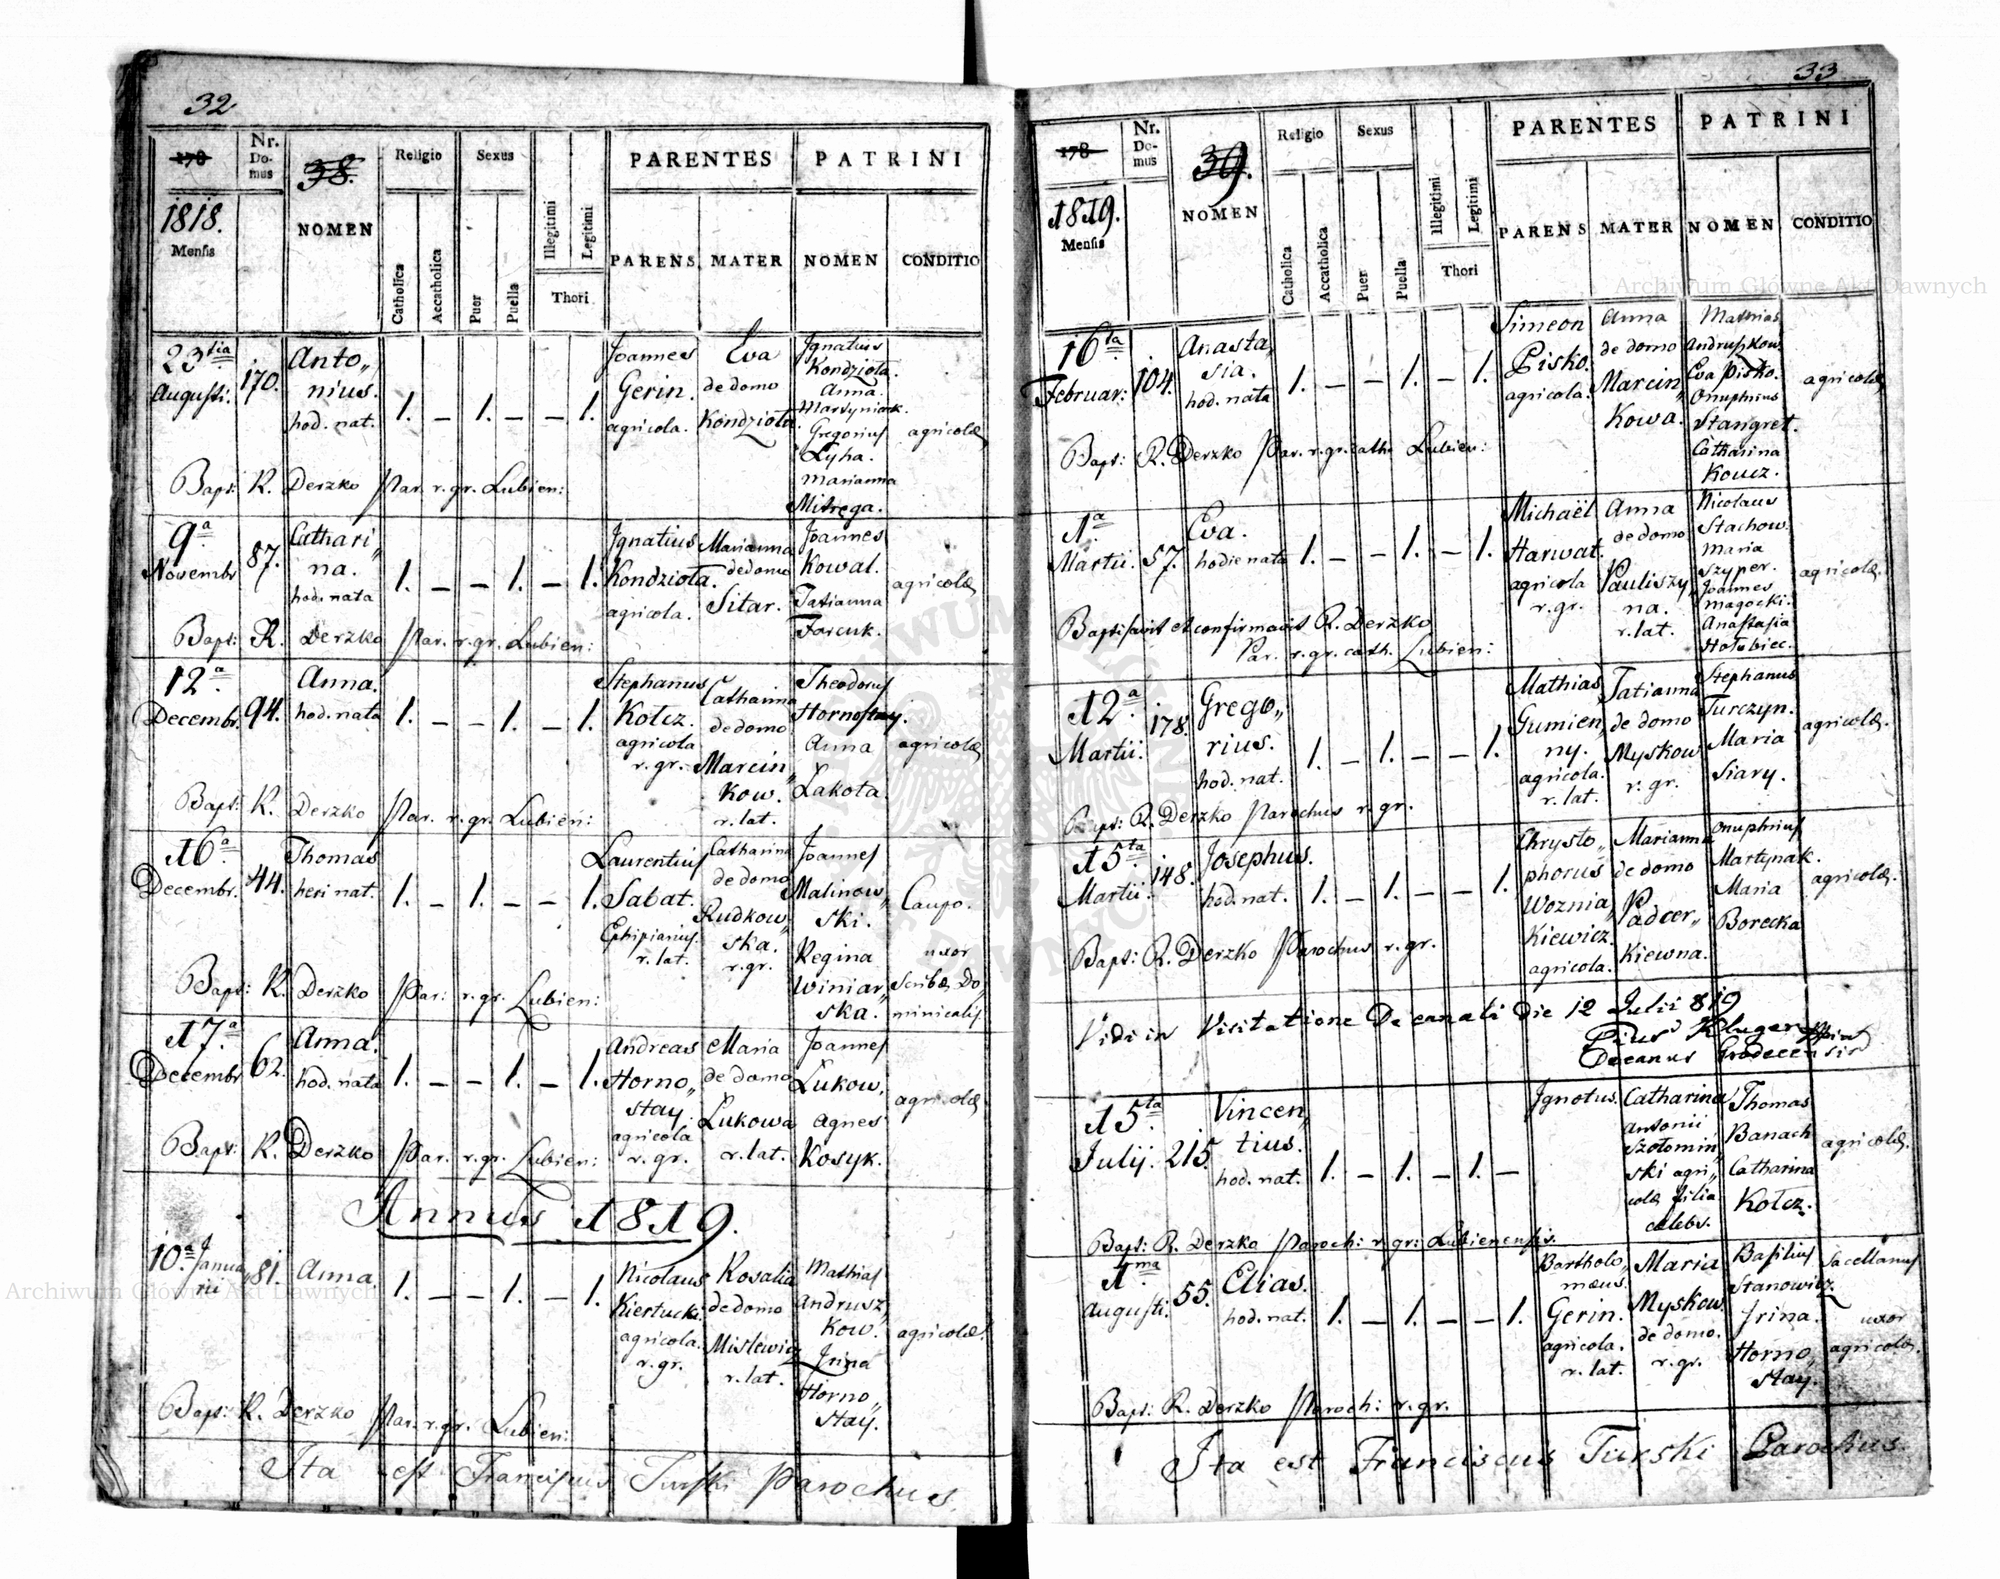 32
178
Nr. Do- mus
38.
Religio
Sexus
Illegitimi
Legitimi
PARENTES
PATRINI
1818.
Mensis
NOMEN
Catholica
Accatholica
Puer
Puella
Thori
PARENS
MATER
NOMEN
CONDITIO
23tia Augusti.
170.
Anto„
nius.
hod. nat.
1. – 1. – – 1.
Joannes
Gerin.
agricola.
Eva
de domo
Kondziota.
Ignatius
Kondziota.
Anna
Martyniak.
Gregorius
Lyha.
Marianna
Mitrega.
agricolæ
Bapt: R. Derzko Par. r. gr. Lubien:
9a
Novembr
87.
Cathari„
na.
hod. nata
1. – – 1. – 1.
Ignatius
Kondziota.
agricola.
Marianna
de domo
Sitar.
Joannes
Kowal.
Tatianna
Farcuk.
agricolæ
Bapt: R. Derzko Par. r. gr. Lubien:
12a
Decembr.
94.
Anna.
hod. nata
1. – – 1. – 1.
Stephanus
Kotcz.
agricola
r. gr.
Catharina
de domo
Marcin„
kow.
r. lat.
Theodorus
Hornostay.
Anna
Lakota.
agricolæ
Bapt: R. Derzko Par. r. gr. Lubien:
16a
Decembr.
44.
Thomas
heri nat.
1. – 1. – – 1.
Laurentius
Sabat.
Ephipianus.
r. lat.
Catharina
de domo
Rudkow„
ska.
r. gr.
Joannes
Malinow„
ski.
Regina
Winiar„
ska.
Caupo.
uxor
Scribæ Do„
minicalis
Bapt: R. Derzko Par: r. gr. Lubien:
17a
Decembr
62.
Anna.
hod. nata
1. – – 1. – 1.
Andreas
Horno„
stay.
agricola
r. gr.
Maria
de domo
Lukowa
r. lat.
Joannes
Lukow.
Agnes
Kosyk.
agricolæ
Bapt: R. Derzko Par. r. gr. Lubien:
Annus 1819.
10a Janua„
rii
81.
Anna.
1. – – 1. – 1.
Nicolaus
Kiertucki.
agricola.
r. gr.
Rosalia
de domo
Mislewicz
r. lat.
Mathias
Andrusz„
kow.
Irina
Horno„
stay.
agricolæ.
Bapt: R. Derzko Par. r. gr. Lubien:
Ita est Franciscus Turski Parochus.
33
178
Nr. Do- mus
39.
Religio
Sexus
Illegitimi
Legitimi
PARENTES
PATRINI
1819.
Mensis
NOMEN
Catholica
Accatholica
Puer
Puella
Thori
PARENS
MATER
NOMEN
CONDITIO
16ta
Februar:
104.
Anasta„
sia.
hod. nata
1. – – 1. – 1.
Simeon
Pisko.
agricola.
Anna
de domo
Marcin„
Kowa.
Mathias
Andruszkow.
Eva Pisko.
Onuphrius
Stangret.
Catharina
Koucz.
agricolæ
Bapt: R. Derzko Par. r. gr. cath. Lubien:
1a
Martii.
57.
Eva.
hodie nata
1. – – 1. – 1.
Michaël
Harwat.
agricola
r. gr.
Anna
de domo
Pauliszy„
na.
r. lat.
Nicolaus
Stachow.
Maria
Szyper.
Joannes
Magocki.
Anastasia
Hotubiec.
agricolæ.
Baptisavit et confirmavit R. Derzko
Par. r. gr. cath. Lubien:
12a
Martii.
178.
Grego„
rius.
hod. nat.
1. – 1. – – 1.
Mathias
Gumien„
ny.
agricola.
r. lat.
Tatianna
de domo
Myskow
r. gr.
Stephanus
Turczyn.
Maria
Siary.
agricolæ.
Bapt: R. Derzko Parochus r. gr.
15ta
Martii.
148.
Josephus.
hod. nat.
1. – 1. – – 1.
Chrysto„
phorus
Woznia„
Kiewicz.
agricola.
Marianna
de domo
Padcer„
Kiewna.
Onuphrius
Martynak.
Maria
Borecka
agricolæ.
Bapt: R. Derzko Parochus r. gr.
Vidi in Visitatione Decanali die 12 Julii 819
Pius Kluger
Decanus Grodecensis
15ta
Julij.
215.
Vincen„
tius.
hod. nat.
1. – 1. – 1. –
Ignotus.
Catharina
Antonii
Szotomin„
ski agri„
colæ filia
celebs.
Thomas
Banach
Catharina
Kotcz.
agricolæ.
Bapt: R. Derzko Paroch: r. gr: Lubienensis.
1ma
Augusti.
55.
Elias.
hod. nat.
1. – 1. – – 1.
Bartholo„
mæus.
Gerin.
agricola.
r. lat.
Maria
Myskow
de domo.
r. gr.
Basilius
Stanowicz
Irina.
Horno„
stay.
Sacellanus
uxor
agricolæ.
Bapt: R. Derzko Paroch: r. gr.
Ita est Franciscus Turski Parochus.
Archiwum Główne Akt Dawnych
Archiwum Główne Akt Dawnych